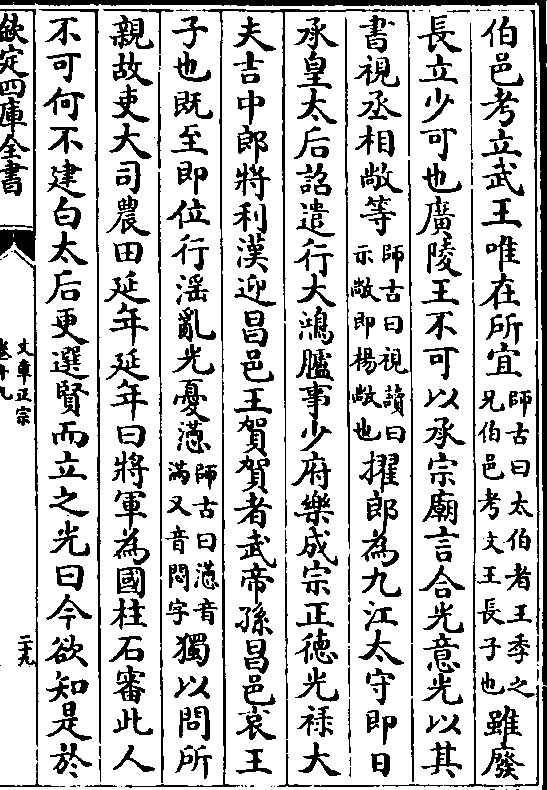 伯邑考立武王唯在所宜師古曰太伯者王季之兄伯邑考文王長子也雖廢
長立少可也廣陵王不可以承宗廟言合光意光以其
書視丞相敞等師古曰視讀曰示敞即楊敞也擢郎為九江太守即日
承皇太后詔遣行大鴻臚事少府樂成宗正徳光祿大
夫吉中郎將利漢迎昌邑王賀賀者武帝孫昌邑哀王
子也既至即位行淫亂光憂懣師古曰懣音滿又音悶字獨以問所
親故吏大司農田延年延年曰將軍為國柱石審此人
不可何不建白太后更選賢而立之光曰今欲如是於
欽定四庫全書
文章正宗
卷十九
二十九